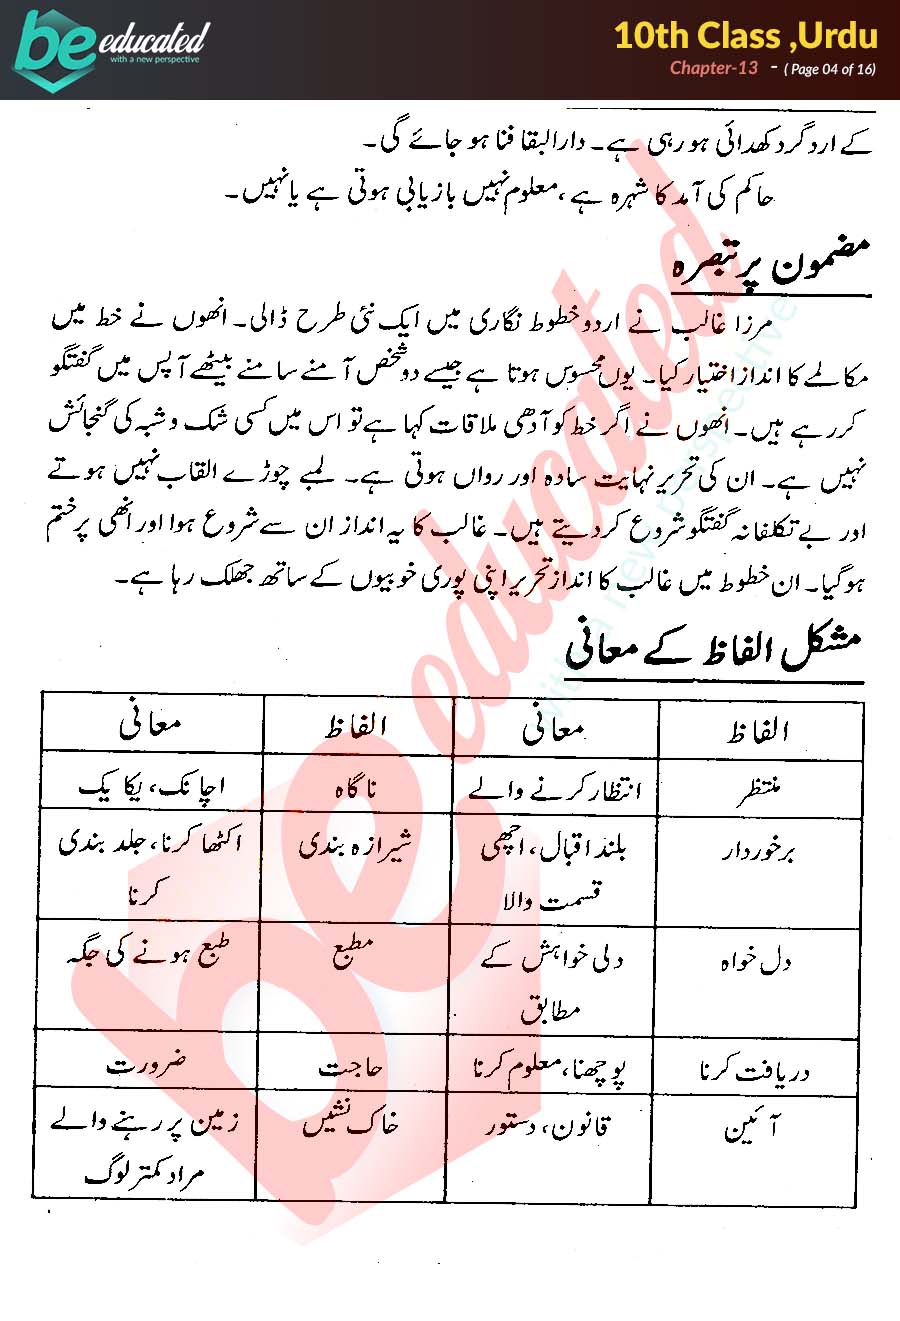 be educated
with a new perspective
10th Class ,Urdu
Chapter-13 - ( Page 04 of 16)
کے ارد گرد کھدائی ہو رہی ہے۔ دارالبقا فنا ہو جائے گی۔
حاکم کی آمد کا شہرہ ہے، معلوم نہیں بازیابی ہوتی ہے یا نہیں۔
مضمون پر تبصرہ
مرزا غالب نے اردو خطوط نگاری میں ایک نئی طرح ڈالی۔ انھوں نے خط میں
مکالمے کا انداز اختیار کیا۔ یوں محسوس ہوتا ہے جیسے دو شخص آمنے سامنے بیٹھے آپس میں گفتگو
کر رہے ہیں۔ انھوں نے اگر خط کو آدھی ملاقات کہا ہے تو اس میں کسی شک و شبہ کی گنجائش
نہیں ہے۔ ان کی تحریر نہایت سادہ اور رواں ہوتی ہے۔ لمبے چوڑے القاب نہیں ہوتے
اور بے تکلفانہ گفتگو شروع کر دیتے ہیں۔ غالب کا یہ انداز ان سے شروع ہوا اور انھی پر ختم
ہو گیا۔ ان خطوط میں غالب کا انداز تحریر اپنی پوری خوبیوں کے ساتھ جھلک رہا ہے۔
مشکل الفاظ کے معانی
الفاظ معانی الفاظ معانی
منتظر انتظار کرنے والے ناگاہ اچانک، یکایک
برخوردار بلند اقبال، اچھی شیرازہ بندی اکٹھا کرنا، جلد بندی
قسمت والا کرنا
دل خواہ دلی خواہش کے مطبع طبع ہونے کی جگہ
مطابق
دریافت کرنا پوچھنا، معلوم کرنا حاجت ضرورت
آئین قانون، دستور خاک نشیں زمین پر رہنے والے
مراد کمتر لوگ
be educated
with a new perspective